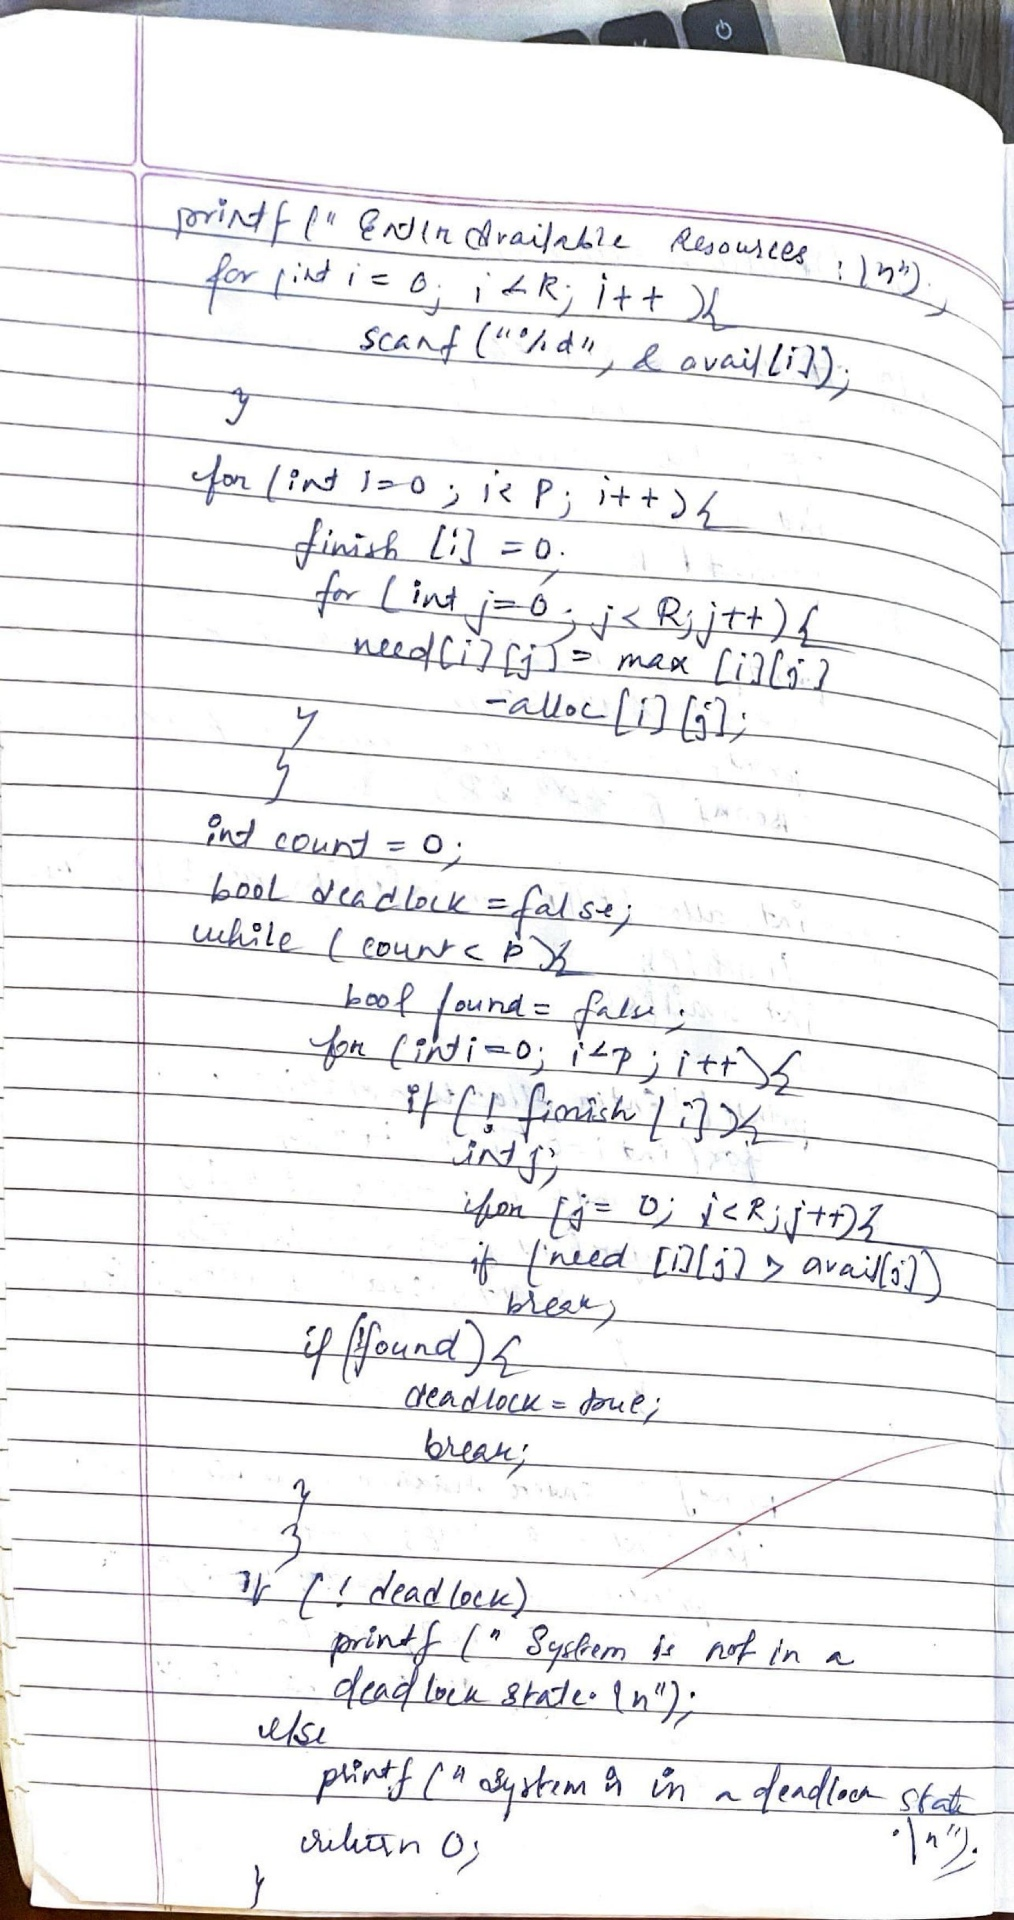 printf (" Enter Available Resources : \n");
for (int i = 0; i < R; i++ ){
scanf ("%d", & avail[i]);
}
for (int i=0 ; i< P; i++ ){
finish [i] = 0;
for ( int j=0; j< R; j++) {
need[i][j] = max [i][j]
-alloc [i][j];
}
}
int count = 0;
bool deadlock = false;
while ( count < P ){
bool found = false;
for (int i=0; i<P; i++){
if (! finish [i] ){
int j;
for (j= 0; j<R; j++){
if (need [i][j] > avail[j])
break;
if (!found) {
deadlock = true;
break;
}
}
If (! deadlock)
printf (" System is not in a
deadlock state. \n");
else
printf (" System is in a deadlock state
.\n");
return 0;
}